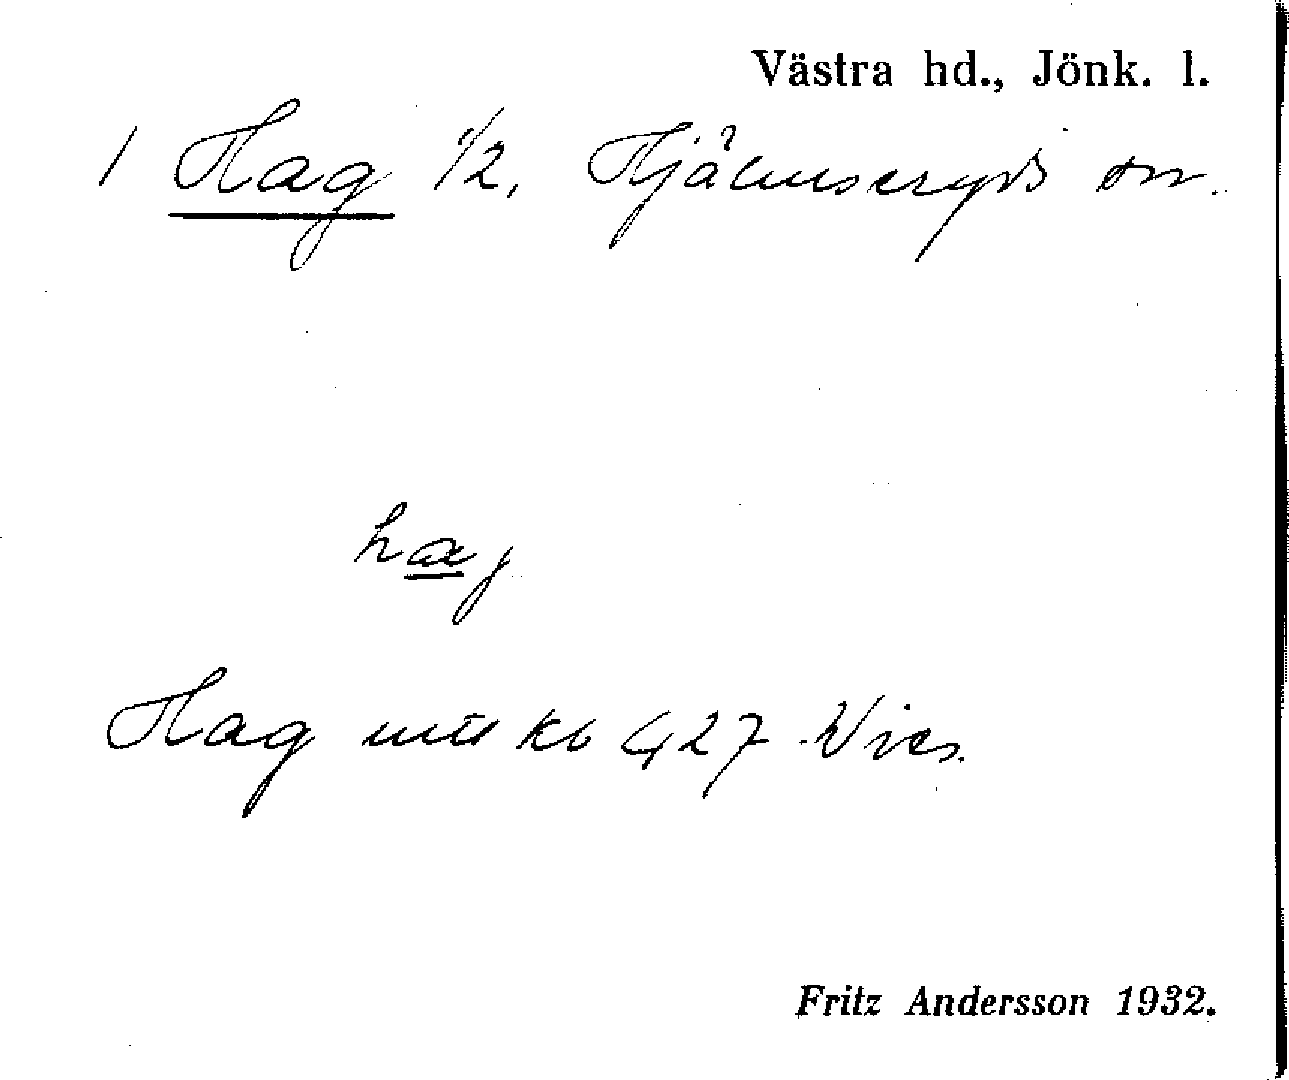 Västra hd., Jönk. l.
1 Hag 1/2, Hjälmseryds sn.
hag
Hag mtl Kb 427 Vies.
Fritz Andersson 1932.